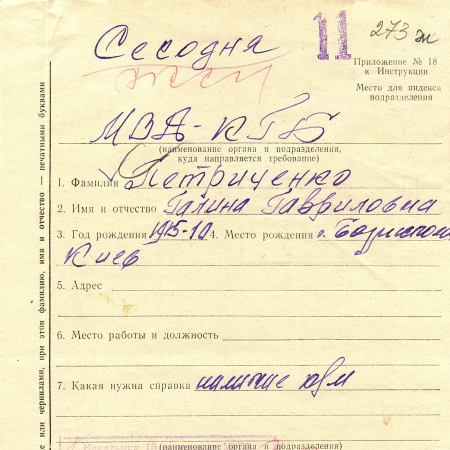 Сегодня
11
273 ж
Приложение № 18
к Инструкции
Место для индекса
подразделения
МВД-КГБ
(наименование органа и подразделения,
куда направляется требование)
1. Фамилия Петриченко
2. Имя и отчество Галина Гавриловна
3. Год рождения 1915-10 4. Место рождения г.
Киев
5. Адрес
6. Место работы и должность
7. Какая нужна справка наличие
(наименование органа и подразделения)
е или чернилами, при этом фамилию, имя и отчество — печатными буквами